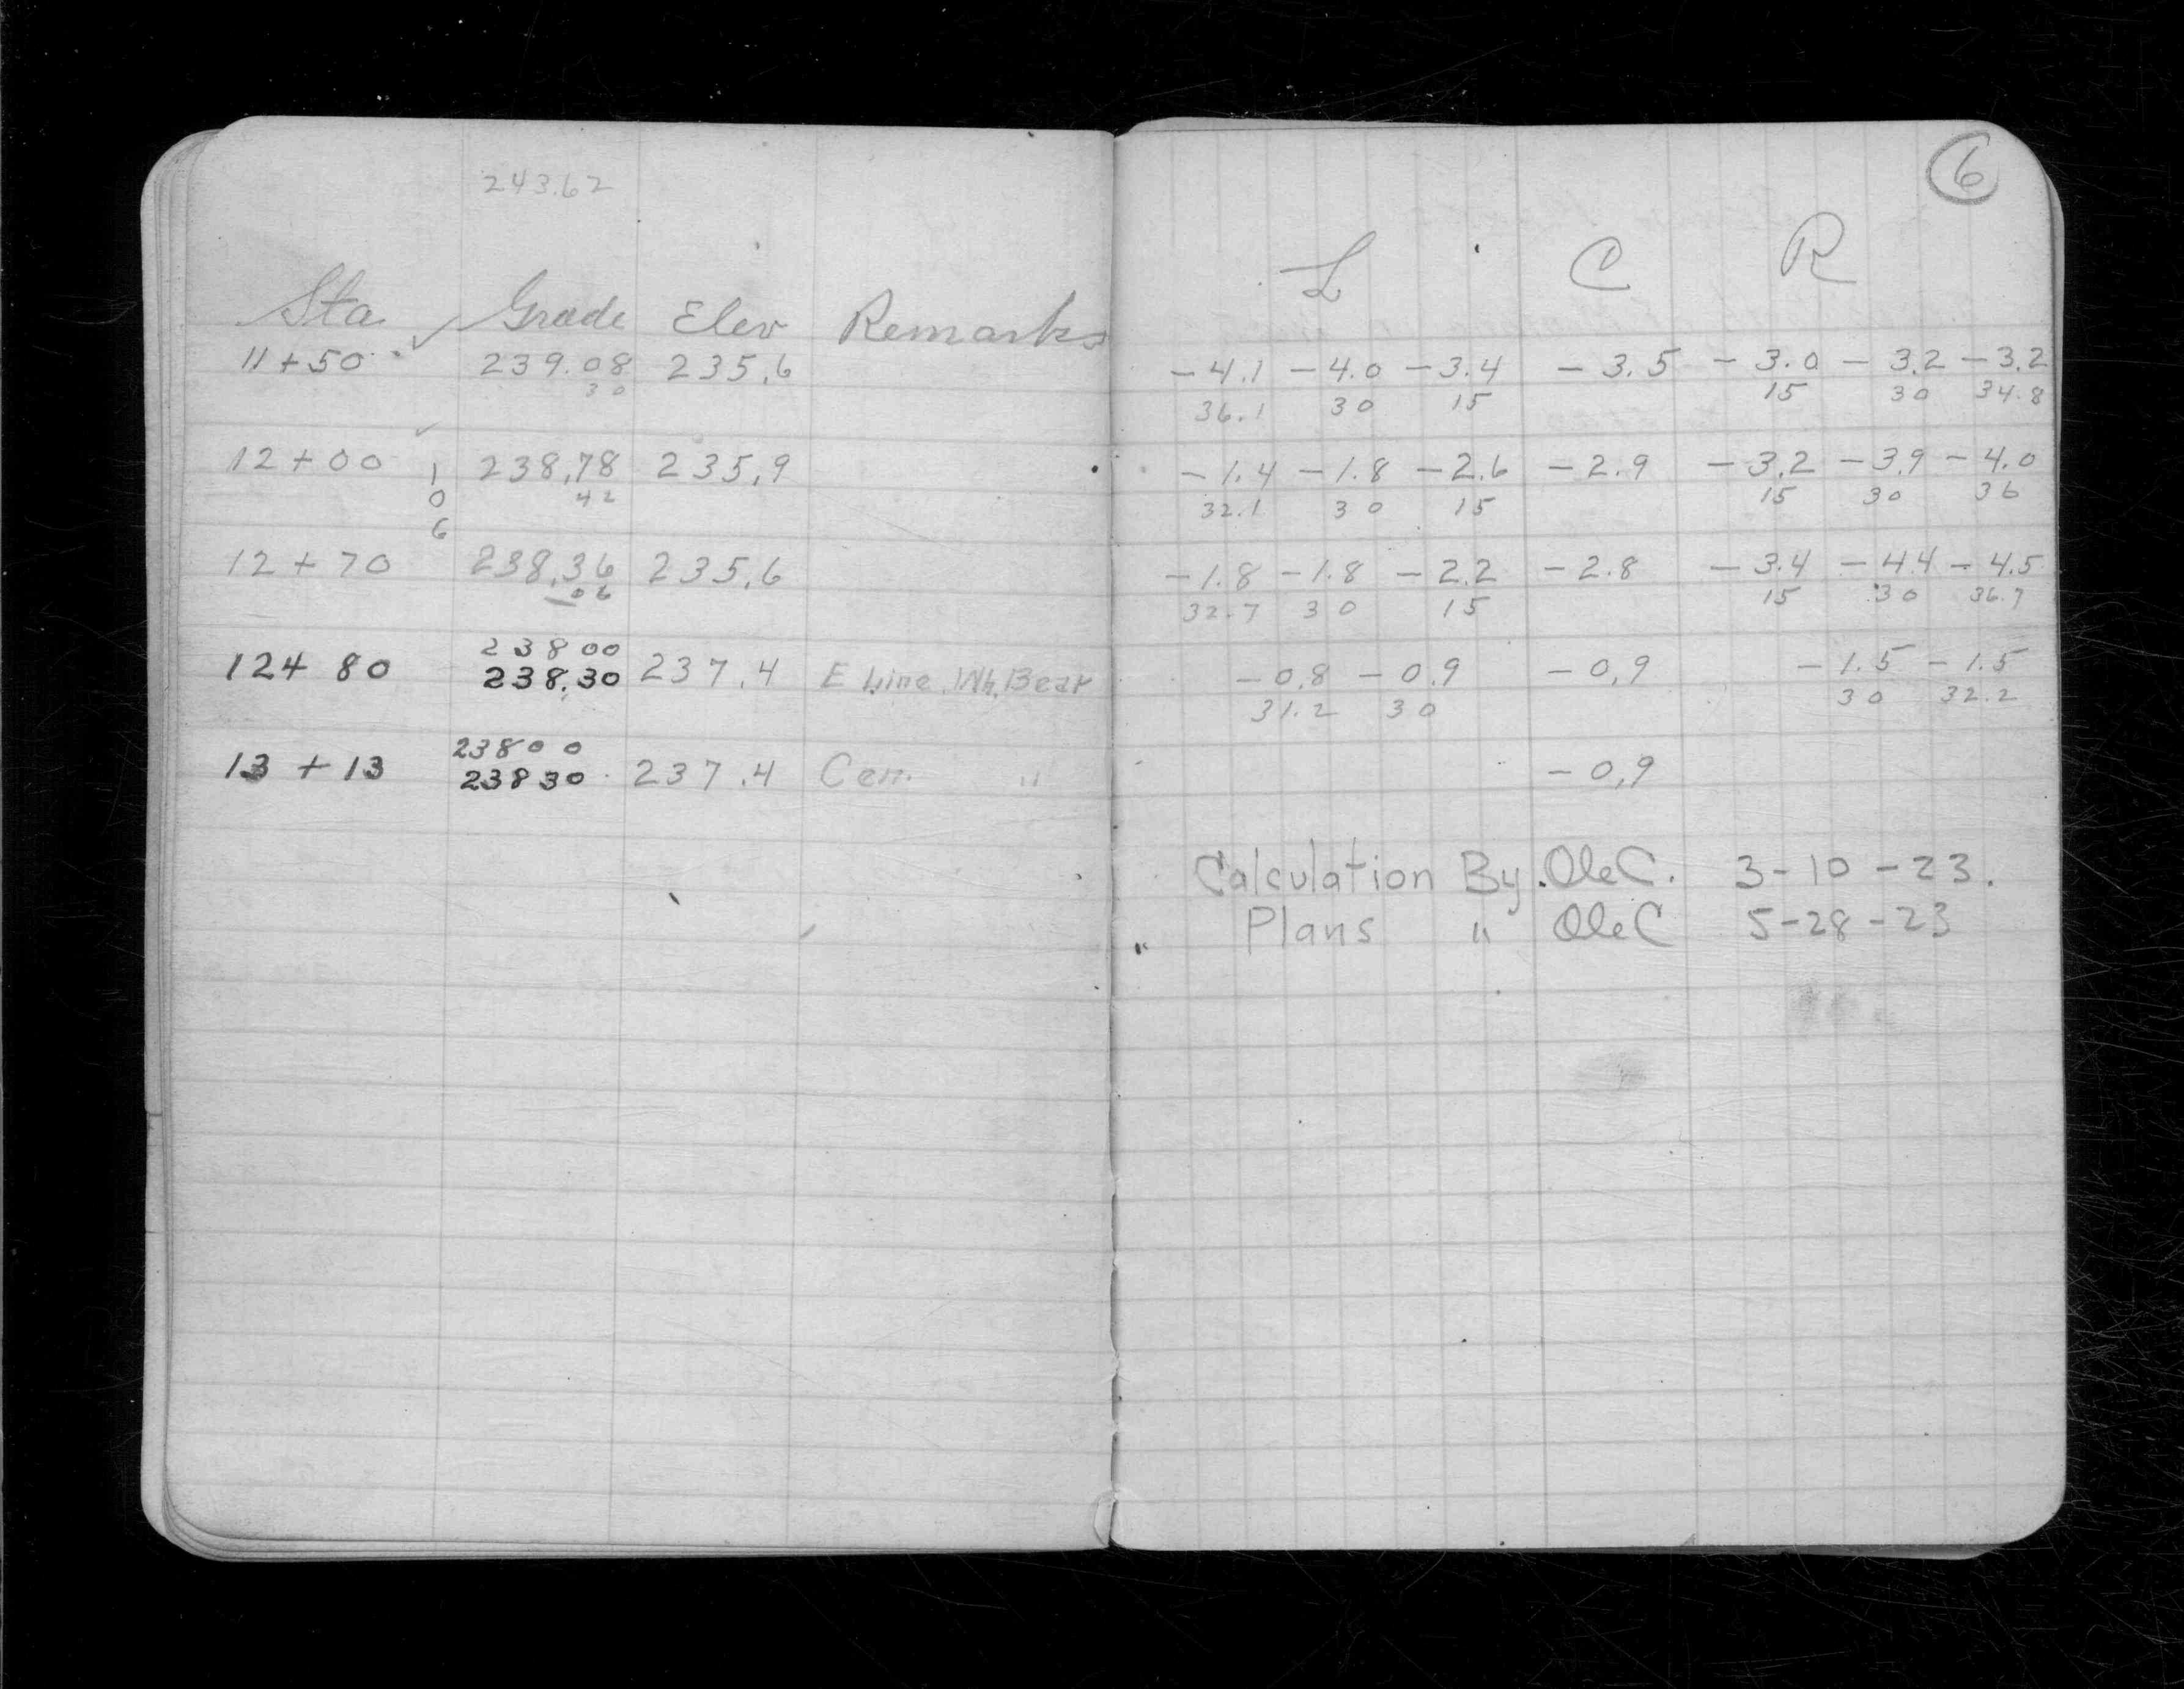 243.62
Sta ✓ Grade Elev Remarks
11+50 ✓ 239.08 235.6
30
12+00 238.78 235.9
1 42
0
6
12+70 238.36 235.6
06
238 00
12+80 238.30 237.4 E Line Wh. Bear
238 00
13+13 238 30 237.4 Cen. "
6
L C R
-4.1 -4.0 -3.4 -3.5 -3.0 -3.2 -3.2
36.1 30 15 15 30 34.8
-1.4 -1.8 -2.6 -2.9 -3.2 -3.9 -4.0
32.1 30 15 15 30 36
-1.8 -1.8 -2.2 -2.8 -3.4 -4.4 -4.5
32.7 30 15 15 30 36.7
-0.8 -0.9 -0.9 -1.5 -1.5
31.2 30 30 32.2
-0.9
Calculation By. Ole C. 3-10-23.
Plans " Ole C 5-28-23